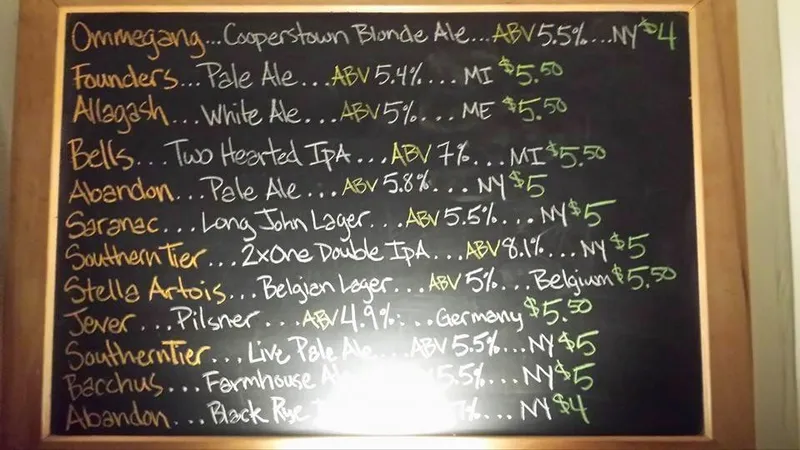 Ommegang...Cooperstown Blonde Ale...ABV 5.5%...NY $4
Founders...Pale Ale...ABV 5.4%...MI $5.50
Allagash...White Ale...ABV 5%...ME $5.50
Bells...Two Hearted IPA...ABV 7%...MI $5.50
Abandon...Pale Ale...ABV 5.8%...NY $5
Saranac...Long John Lager...ABV 5.5%...NY $5
Southern Tier...2xOne Double IPA...ABV 8.1%...NY $5
Stella Artois...Belgian Lager...ABV 5%...Belgium $5.50
Jever...Pilsner...ABV 4.9%...Germany $5.50
Southern Tier...Live Pale Ale...ABV 5.5%...NY $5
Bacchus...Farmhouse 5.5%...NY $5
Abandon...Black Rye ...NY $4